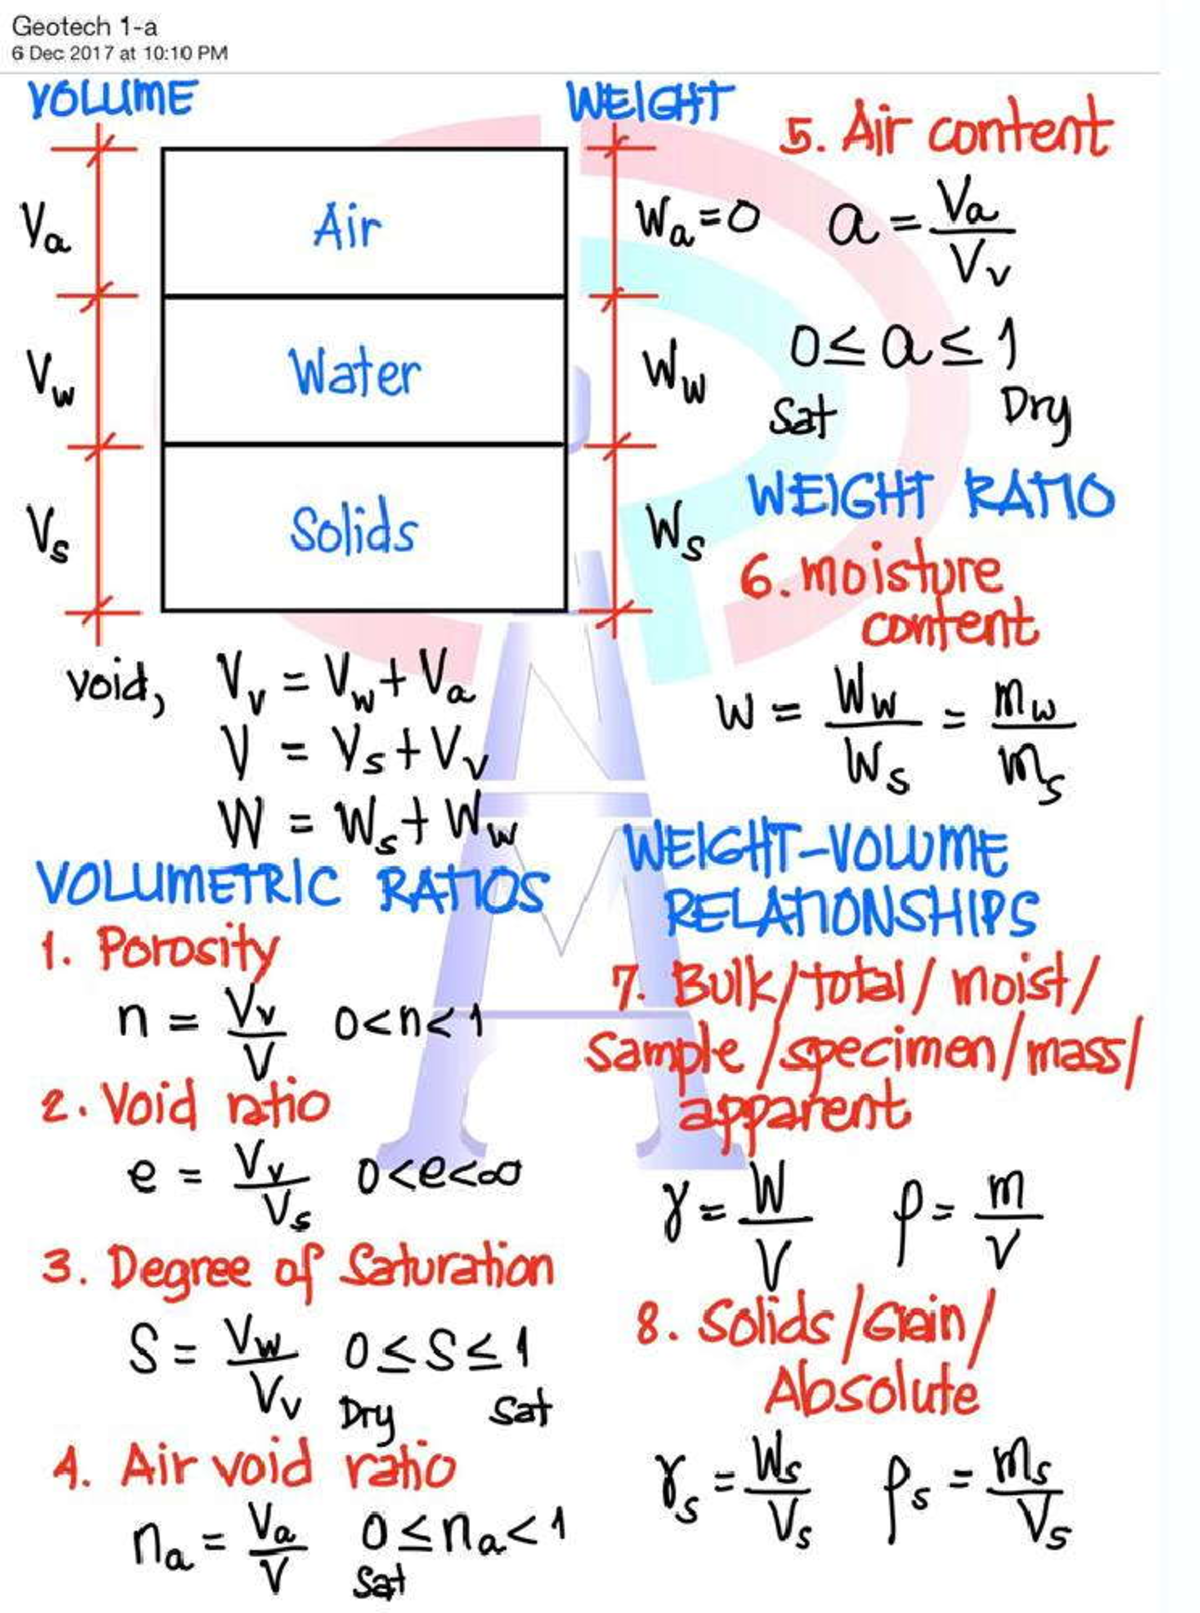 Geotech 1-a
6 Dec 2017 at 10:10 PM
VOLUME
WEIGHT
Va
Air
Wa = 0
Vw
Water
Ww
Vs
Solids
Ws
void, Vv = Vw + Va
V = Vs + Vv
W = Ws + Ww
VOLUMETRIC RATIOS
1. Porosity
n = Vv/V 0<n<1
2. Void ratio
e = Vv/Vs 0<e<∞
3. Degree of Saturation
S = Vw/Vv 0≤S≤1
Dry Sat
4. Air void ratio
na = Va/V 0≤na<1
Sat
5. Air content
a = Va/Vv
0≤a≤1
Sat Dry
WEIGHT RATIO
6. moisture
content
W = Ww/Ws = mw/ms
WEIGHT-VOLUME
RELATIONSHIPS
7. Bulk/total/moist/
Sample/specimen/mass/
apparent
γ = W/V ρ = m/V
8. Solids/Grain/
Absolute
γs = Ws/Vs ρs = ms/Vs